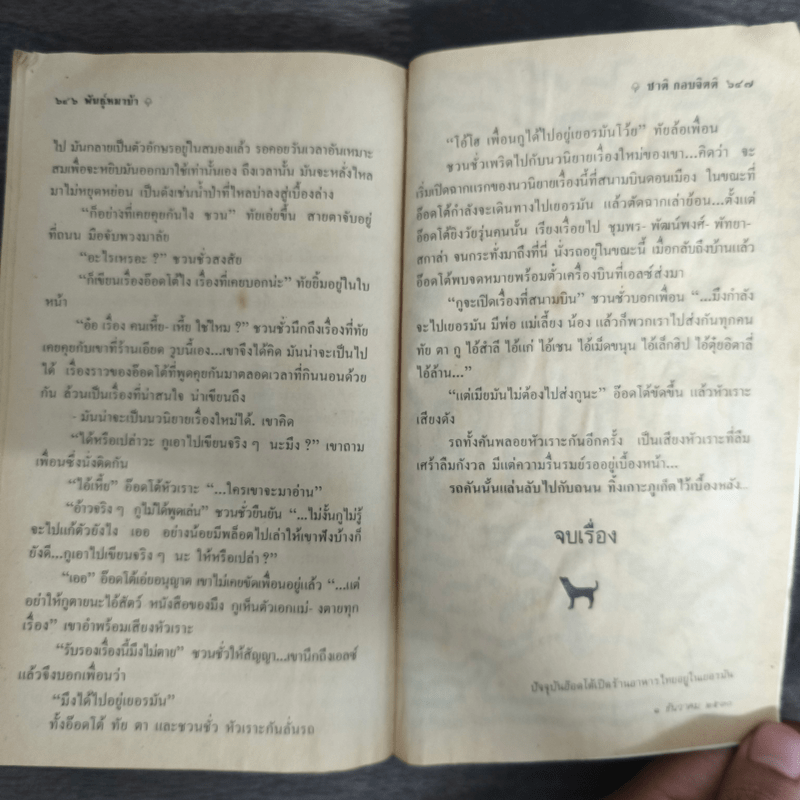 ๖๔๖ พันธุ์หมาบ้า
ไป มันกลายเป็นตัวอักษรอยู่ในสมองแล้ว รอคอยวันเวลาอันเหมาะ
สมเพื่อจะหยิบมันออกมาใช้เท่านั้นเอง ถึงเวลานั้น มันจะหลั่งไหล
มาไม่หยุดหย่อน เป็นดังเช่นน้ำป่าที่ไหลบ่าลงสู่เบื้องล่าง
“ก็อย่างที่เคยคุยกันไง ชวน” ทัยเอ่ยขึ้น สายตาจับอยู่
ที่ถนน มือจับพวงมาลัย
“อะไรเหรอะ ?” ชวนชั่วสงสัย
“ก็เขียนเรื่องอ๊อดโต้ไง เรื่องที่เคยบอกน่ะ” ทัยยิ้มอยู่ในใบ
หน้า
“อ๋อ เรื่อง คนเหี้ย- เหี้ย ใช่ไหม ?” ชวนชั่วนึกถึงเรื่องที่ทัย
เคยคุยกับเขาที่ร้านเอียด วูบนี้เอง...เขาจึงได้คิด มันน่าจะเป็นไป
ได้ เรื่องราวของอ๊อดโต้ที่พูดคุยกันมาตลอดเวลาที่กินนอนด้วย
กัน ล้วนเป็นเรื่องที่น่าสนใจ น่าเขียนถึง
- มันน่าจะเป็นนวนิยายเรื่องใหม่ได้. เขาคิด
“ได้หรือเปล่าวะ กูเอาไปเขียนจริง ๆ นะมึง ?” เขาถาม
เพื่อนซึ่งนั่งติดกัน
“ไอ้เหี้ย” อ๊อดโต้หัวเราะ “...ใครเขาจะมาอ่าน”
“อ้าวจริง ๆ กูไม่ได้พูดเล่น” ชวนชั่วยืนยัน “...ไม่งั้นกูไม่รู้
จะไปแก้ตัวยังไง เออ อย่างน้อยมีพล็อตไปเล่าให้เขาฟังบ้างก็
ยังดี...กูเอาไปเขียนจริง ๆ นะ ให้หรือเปล่า ?”
“เออ” อ๊อดโต้เอ่ยอนุญาต เขาไม่เคยขัดเพื่อนอยู่แล้ว “...แต่
อย่าให้กูตายนะไอ้สัตว์ หนังสือของมึง กูเห็นตัวเอกแม่- งตายทุก
เรื่อง” เขาอำพร้อมเสียงหัวเราะ
“รับรองเรื่องนี้มึงไม่ตาย” ชวนชั่วให้สัญญา...เขานึกถึงเอลซ์
แล้วจึงบอกเพื่อนว่า
“มึงได้ไปอยู่เยอรมัน”
ทั้งอ๊อดโต้ ทัย ตา และชวนชั่ว หัวเราะกันลั่นรถ
ชาติ กอบจิตติ ๖๔๗
“โอ้โฮ เพื่อนกูได้ไปอยู่เยอรมันโว้ย” ทัยล้อเพื่อน
ชวนชั่วเพริดไปกับนวนิยายเรื่องใหม่ของเขา...คิดว่า จะ
เริ่มเปิดฉากแรกของนวนิยายเรื่องนี้ที่สนามบินดอนเมือง ในขณะที่
อ๊อดโต้กำลังจะเดินทางไปเยอรมัน แล้วตัดฉากเล่าย้อน...ตั้งแต่
อ๊อดโต้ยิงวัยรุ่นคนนั้น เรียงเรื่อยไป ชุมพร- พัฒน์พงศ์- พัทยา-
สกาล่า จนกระทั่งมาถึงที่นี่ นั่งรถอยู่ในขณะนี้ เมื่อกลับถึงบ้านแล้ว
อ๊อดโต้พบจดหมายพร้อมตั๋วเครื่องบินที่เอลซ์ส่งมา
“กูจะเปิดเรื่องที่สนามบิน” ชวนชั่วบอกเพื่อน “...มึงกำลัง
จะไปเยอรมัน มีพ่อ แม่เลี้ยง น้อง แล้วก็พวกเราไปส่งกันทุกคน
ทัย ตา กู ไอ้สำลี ไอ้แก่ ไอ้เชน ไอ้เม็ดขนุน ไอ้เล็กฮิป ไอ้ตุ๋ยอิตาลี่
ไอ้ล้าน...”
“แต่เมียมันไม่ต้องไปส่งกูนะ” อ๊อดโต้ขัดขึ้น แล้วหัวเราะ
เสียงดัง
รถทั้งคันพลอยหัวเราะกันอีกครั้ง เป็นเสียงหัวเราะที่ลืม
เศร้าลืมกังวล มีแต่ความรื่นรมย์รออยู่เบื้องหน้า...
รถคันนั้นแล่นลับไปกับถนน ทิ้งเกาะภูเก็ตไว้เบื้องหลัง...
จบเรื่อง
ปัจจุบันอ๊อดโต้เปิดร้านอาหารไทยอยู่ในเยอรมัน
๑ ธันวาคม ๒๕๓๐